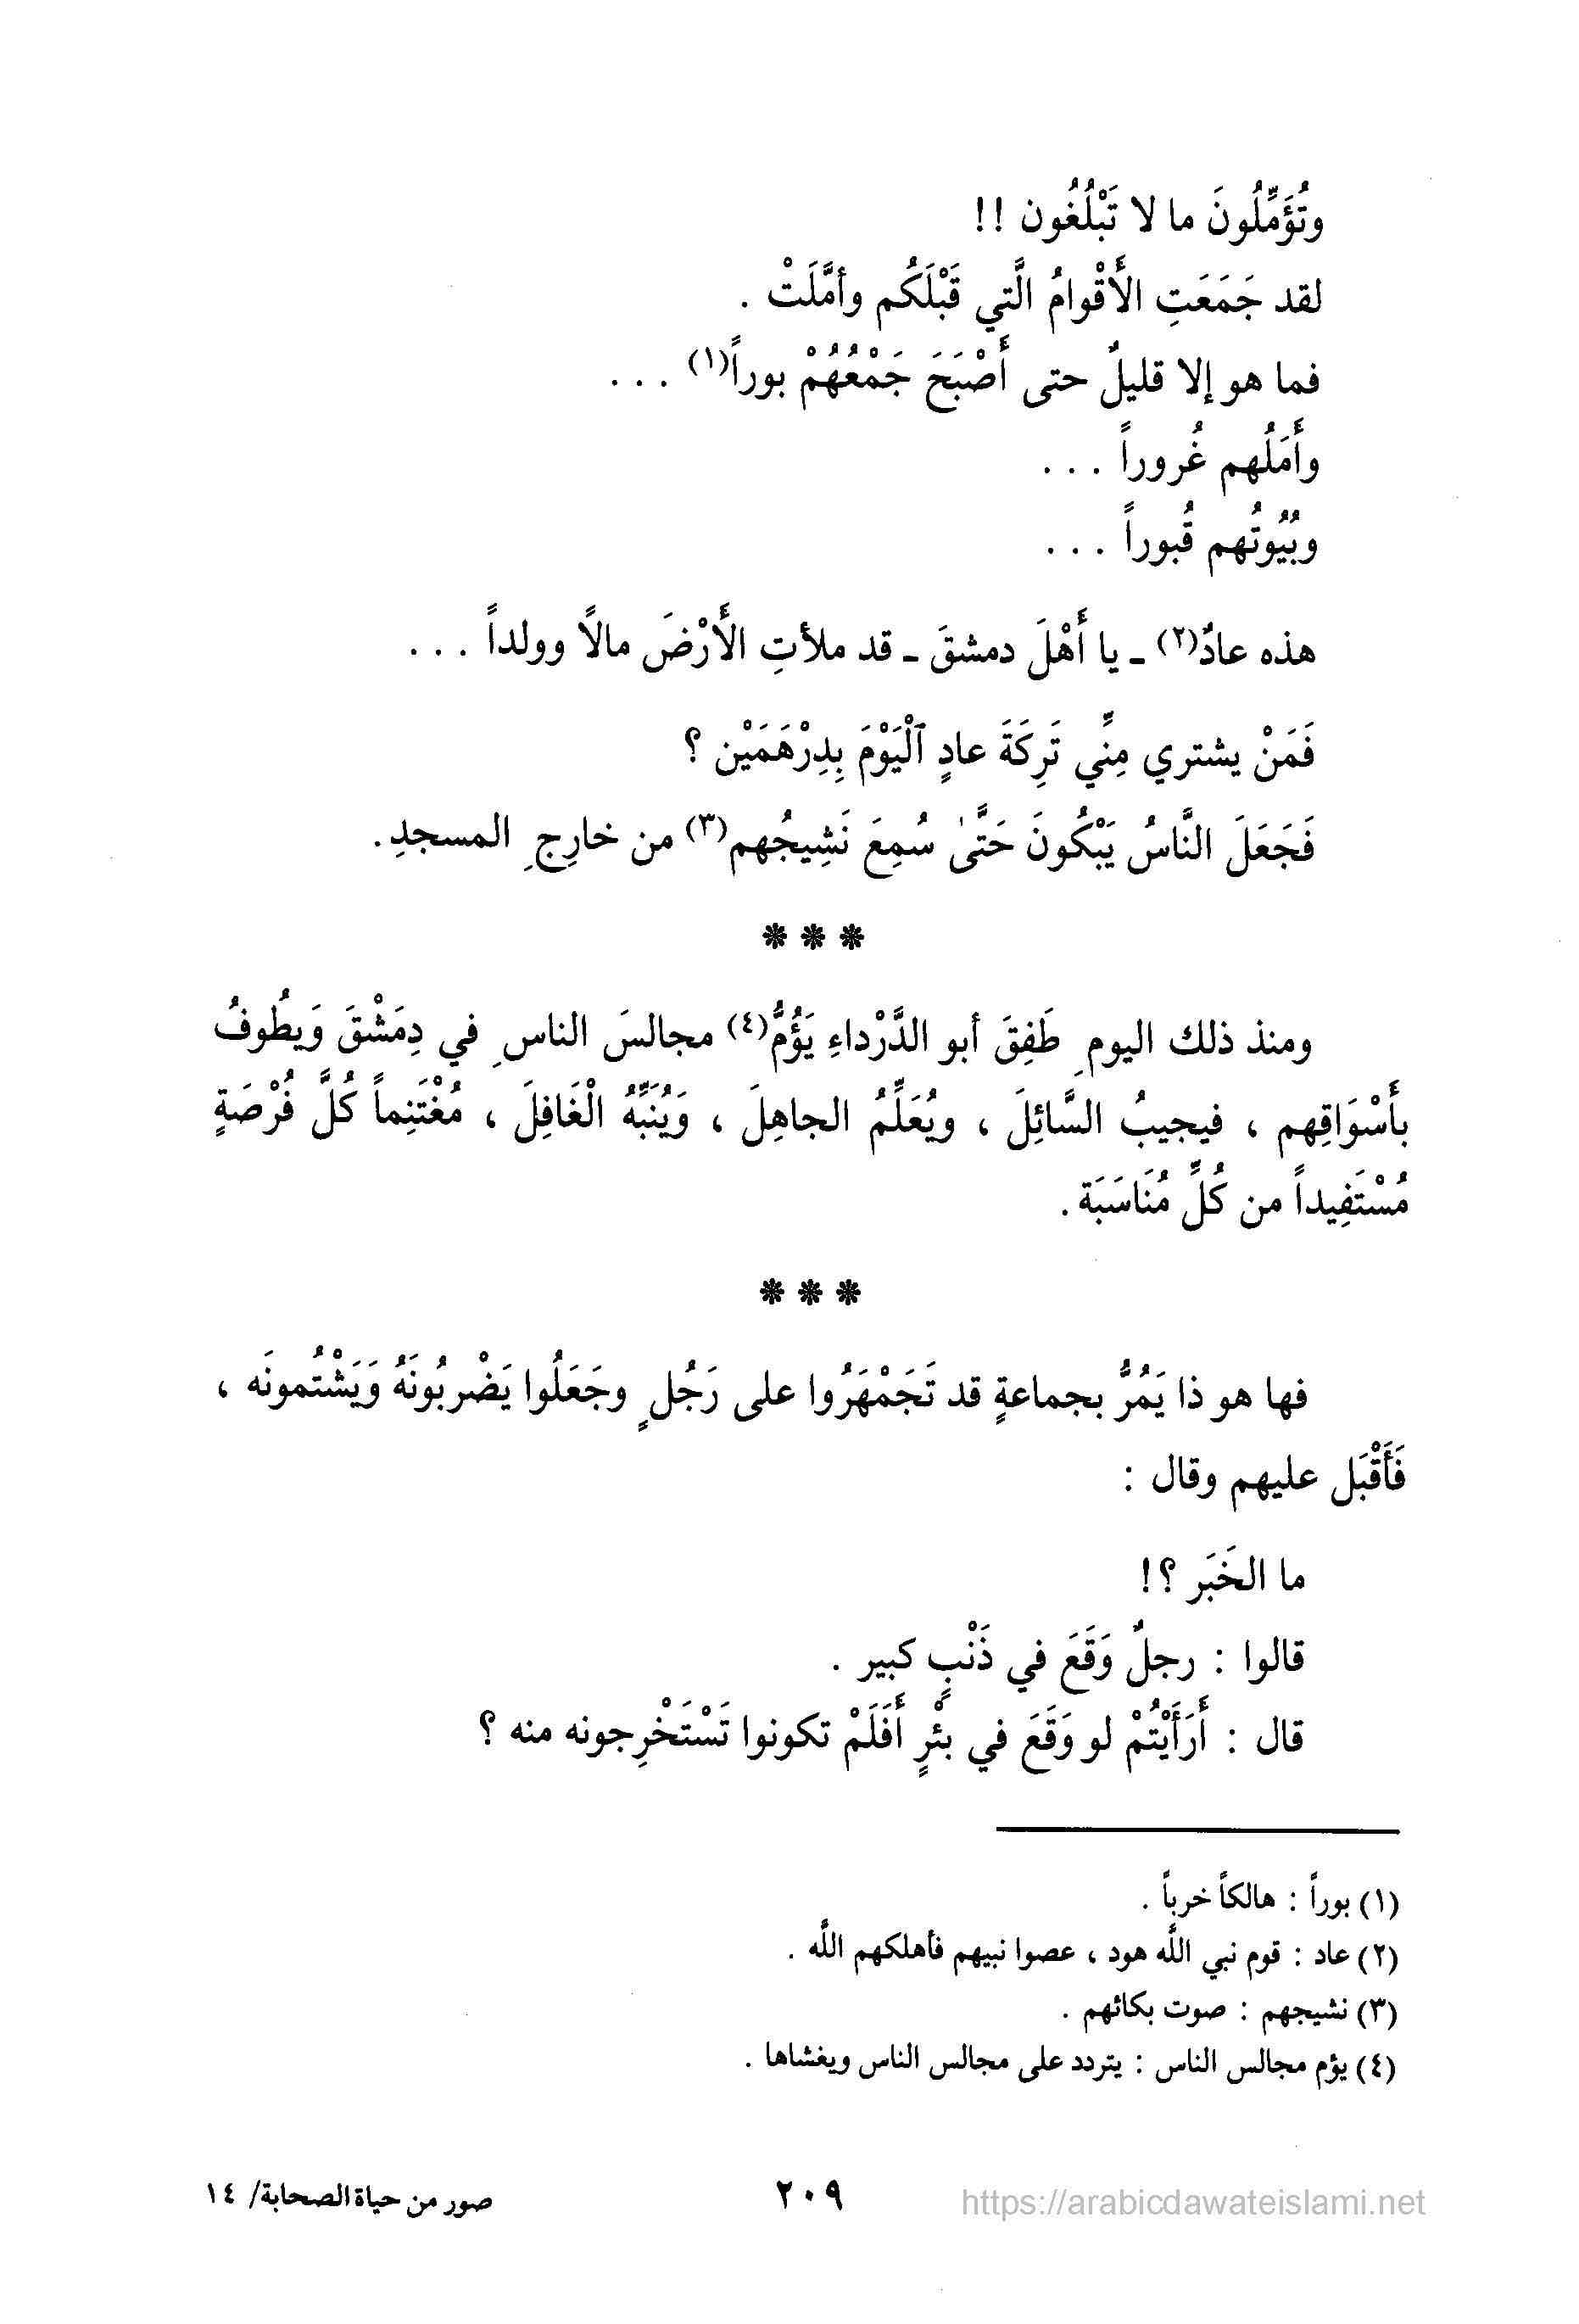 وتُؤَمِّلُونَ ما لا تَبْلُغُون !!
لقد جَمَعَتِ الأَقْوامُ الَّتي قَبْلَكُم وأمَّلَتْ .
فما هو إلا قليلٌ حتى أَصْبَحَ جَمْعُهُمْ بوراً(١) ...
وأَمَلُهم غُروراً ...
وبُيُوتُهم قُبوراً ...
هذه عادٌ(٢) ـ يا أَهْلَ دمشقَ ـ قد ملأتِ الأَرْضَ مالًا وولداً ...
فَمَنْ يشتري مِنِّي تَرِكَةَ عادٍ ٱلْيَوْمَ بِدِرْهَمَيْن ؟
فَجَعَلَ النَّاسُ يَبْكُونَ حَتَّىٰ سُمِعَ نَشِيجُهم(٣) من خارِجِ المسجدِ.
* * *
ومنذ ذلك اليومِ طَفِقَ أبو الدَّرْداءِ يَؤُمُّ(٤) مجالسَ الناسِ في دِمَشْقَ وَيطُوفُ
بأَسْوَاقِهم ، فيجيبُ السَّائِلَ ، ويُعَلِّمُ الجاهِلَ ، وَيُنَبِّهُ الْغَافِلَ ، مُغْتَنِماً كُلَّ فُرْصَةٍ
مُسْتَفِيداً من كُلِّ مُنَاسَبَة .
* * *
فها هو ذا يَمُرُّ بجماعةٍ قد تَجَمْهَرُوا على رَجُلٍ وجَعَلُوا يَضْربُونَهُ وَيَشْتُمونَه ،
فَأَقْبَل عليهم وقال :
ما الخَبَر ؟!
قالوا : رجلٌ وَقَعَ في ذَنْبٍ كبير .
قال : أَرَأَيْتُمْ لو وَقَعَ في بئْرٍ أَفَلَمْ تكونوا تَسْتَخْرِجونه منه ؟
(١) بوراً : هالكاً خرباً .
(٢) عاد : قوم نبي اللَّه هود ، عصوا نبيهم فأهلكهم اللَّه .
(٣) نشيجهم : صوت بكائهم .
(٤) يؤم مجالس الناس : يتردد على مجالس الناس ويغشاها .
https://arabicdawateislami.net ٢٠٩ صور من حياة الصحابة/ ١٤